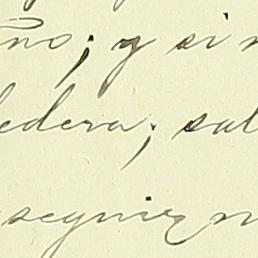 no; y si n
edera; sal
seguir n